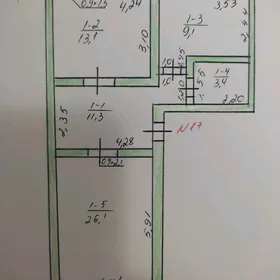 0,9×1,5
4,24
3,53
1-2
13,1
1-3
9,1
3,10
2,44
1-4
3,4
2,20
1-1
11,3
2,35
4,28
N17
0,9×2,1
1-5
26,1
5,91